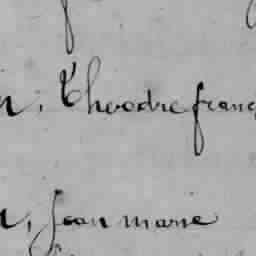 , Théodre franç
, Jean marie